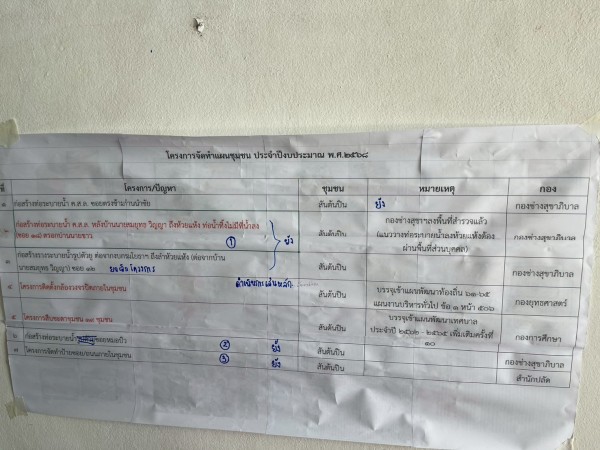 โครงการจัดทำแผนชุมชน ประจำปีงบประมาณ พ.ศ.๒๕๖๘
ที่ โครงการ/ปัญหา ชุมชน หมายเหตุ กอง
๑ ก่อสร้างท่อระบายน้ำ ค.ส.ล. ซอยตรงข้ามกำนันชัย สันต้นปิน ยัง กองช่างสุขาภิบาล
๒ ก่อสร้างท่อระบายน้ำ ค.ส.ล. หลังบ้านนายสมยุทธ วิญญา ถึงห้วยแห้ง ท่อน้ำทิ้งไม่มีที่น้ำลง
(ซอย ๑๘) ตรอกบ้านนายขาว ① ยัง
สันต้นปิน กองช่างสุขาฯลงพื้นที่สำรวจแล้ว
(แนววางท่อระบายน้ำลงห้วยแห้งต้อง
ผ่านพื้นที่ส่วนบุคคล)
กองช่างสุขาภิบาล
๓ ก่อสร้างรางระบายน้ำรูปตัวยู ต่อจากงบกรมโยธาฯ ถึงลำห้วยแห้ง (ต่อจากบ้าน
นายสมยุทธ วิญญา) ซอย ๑๒
สันต้นปิน กองช่างสุขาภิบาล
๔ โครงการติดตั้งกล้องวงจรปิดภายในชุมชน
สันต้นปิน บรรจุเข้าแผนพัฒนาท้องถิ่น ๖๑-๖๕
แผนงานบริหารทั่วไป ข้อ ๑ หน้า ๕๐๖
กองยุทธศาสตร์
๕ โครงการสืบชะตาชุมชน ๑๙ ชุมชน
สันต้นปิน บรรจุเข้าแผนพัฒนาเทศบาล
ประจำปี ๒๕๖๑ - ๒๕๖๕ เพิ่มเติมครั้งที่
๑๐
กองการศึกษา
๖ ก่อสร้างท่อระบายน้ำ ซอยหมอแก้ว ② ยัง สันต้นปิน กองช่างสุขาภิบาล
๗ โครงการจัดทำป้ายซอย/ถนนภายในชุมชน ③ ยัง สันต้นปิน สำนักปลัด